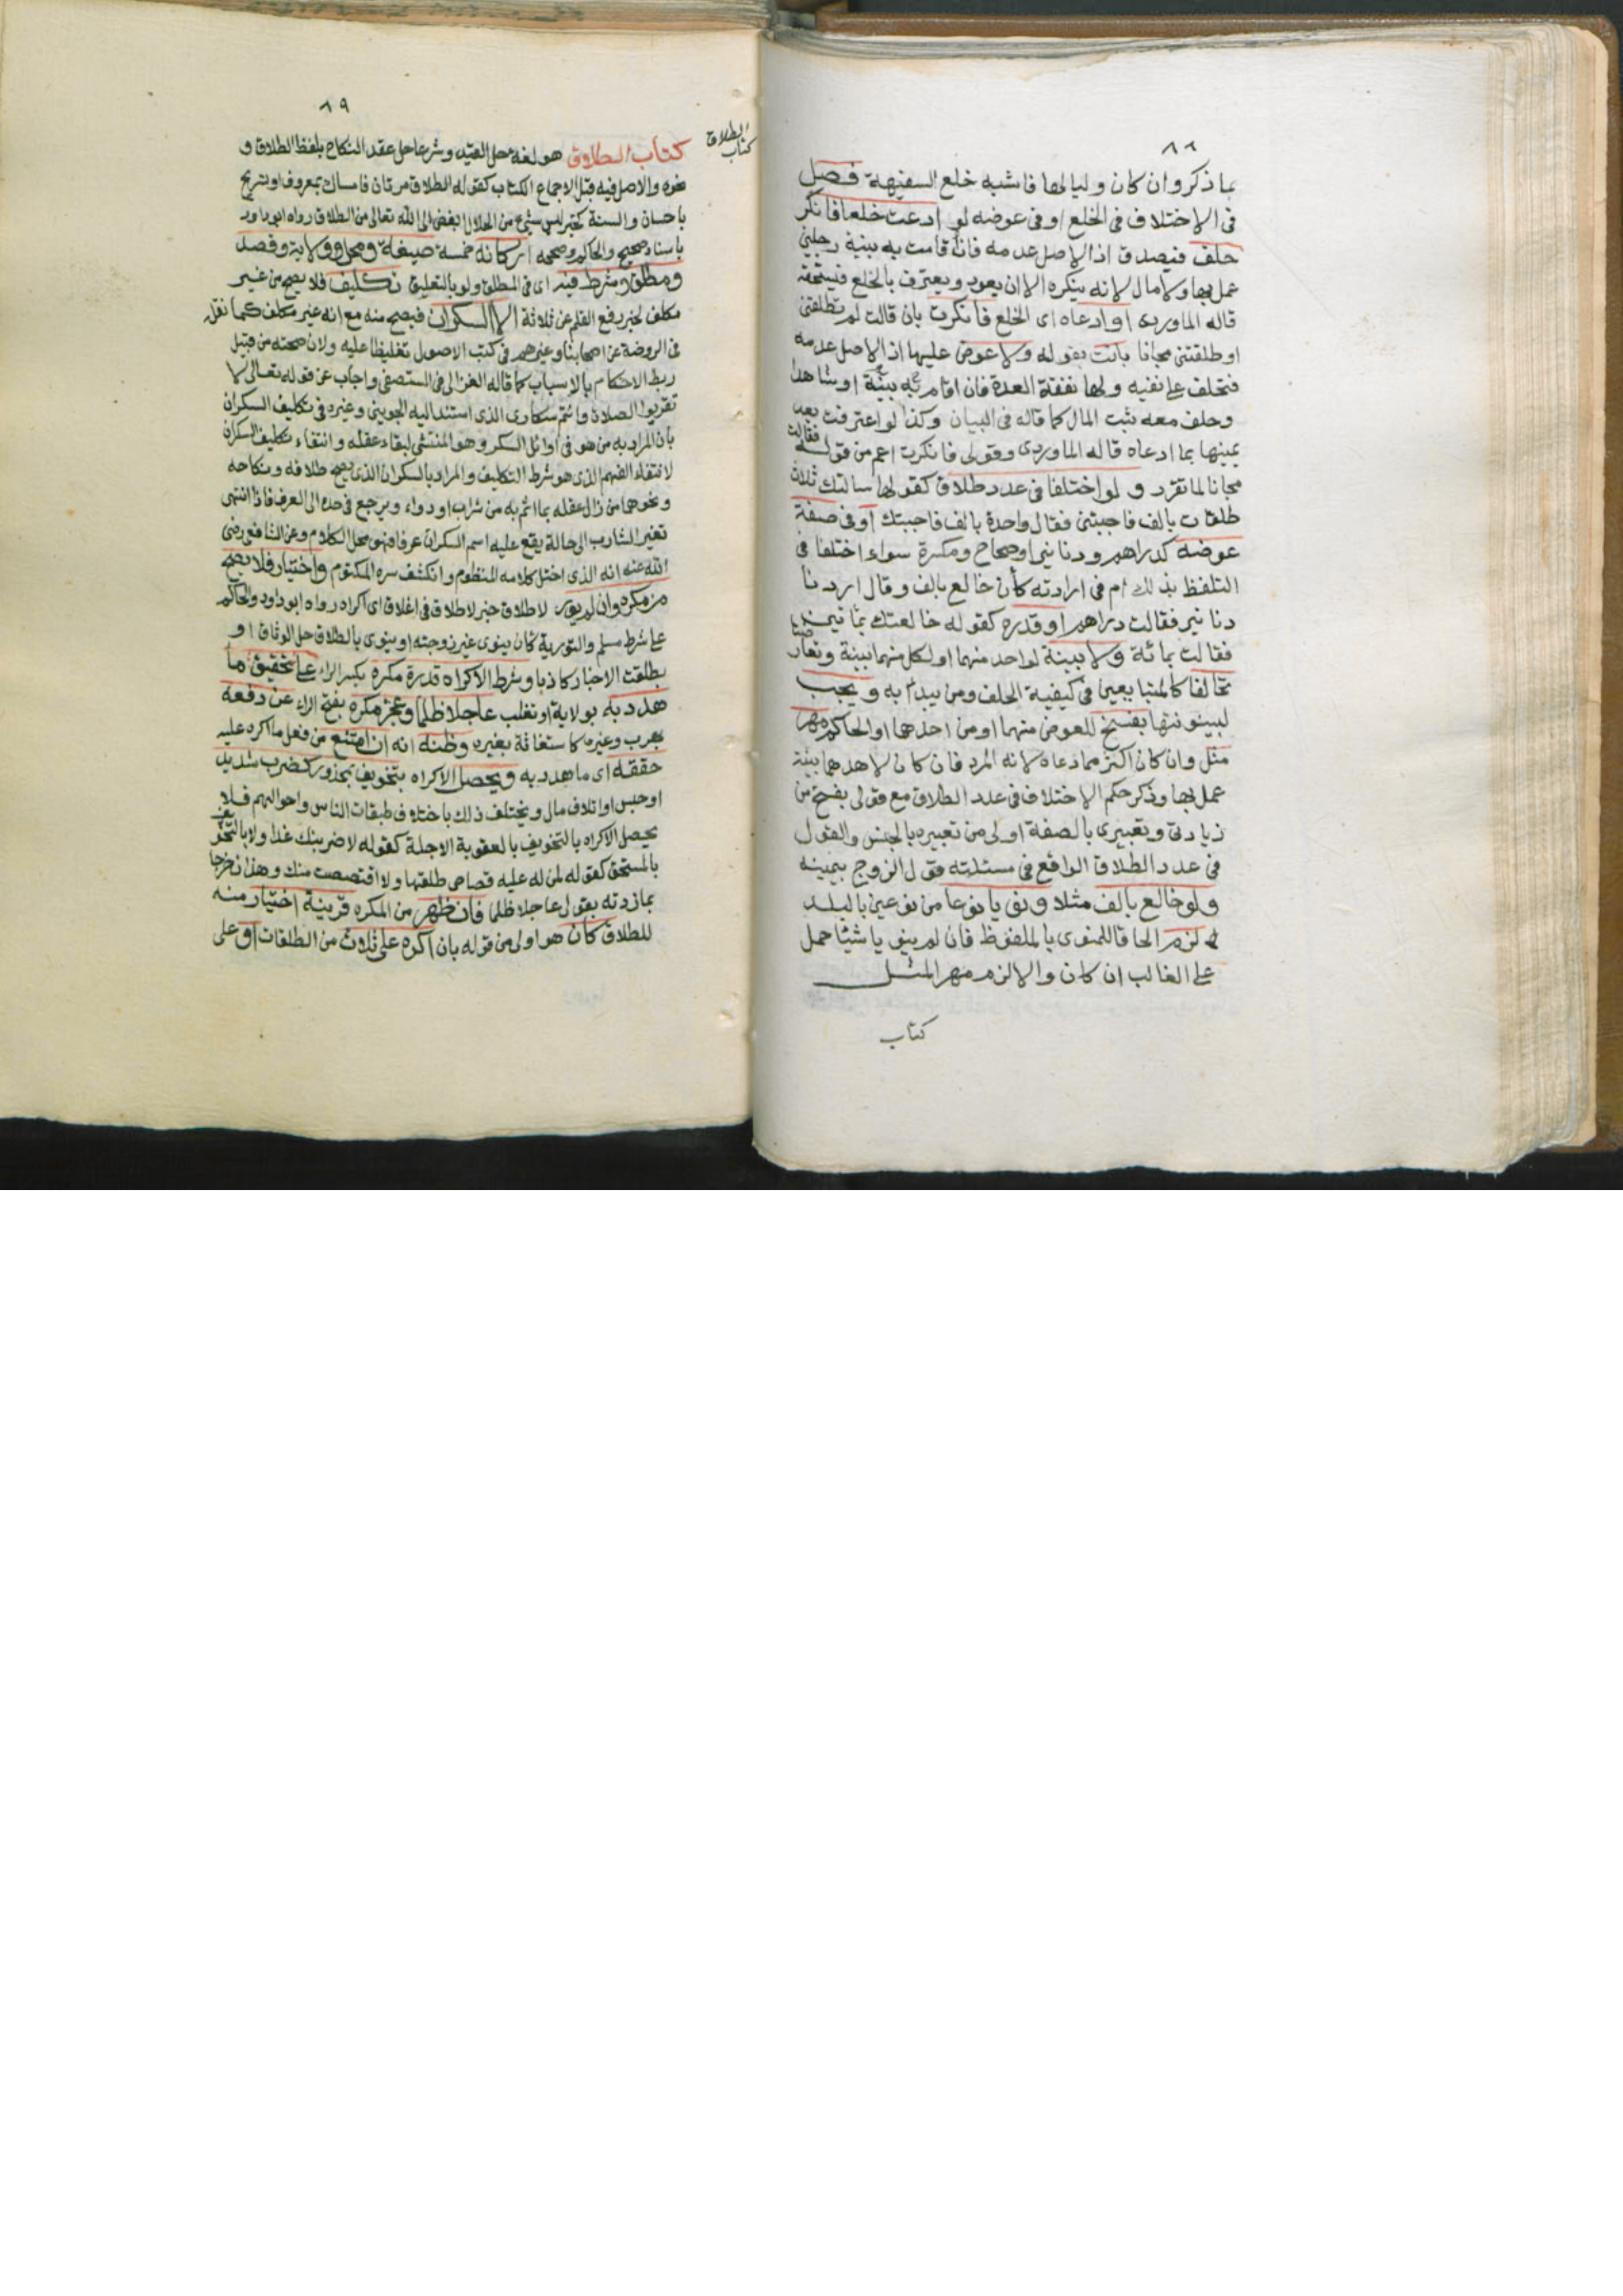 ٨٨
بما ذكر وان كان وليا لها فاشبه خلع السفيهة فصل
فى الاختلاف فى الخلع او فى عوضه لو ادعت خلعا فانكر
حلف فيصدق اذ الاصل عدمه فان اقامت به بينة رجلين
عمل بها ولا مال لانه ينكره الا ان يعود ويعترف بالخلع فيستحقه
قاله الماوردى او ادعاه اى الخلع فانكرت بان قالت لم تطلقنى
او طلقتنى مجانا بانت بقوله ولا عوض عليها اذ الاصل عدمه
فتحلف على نفيه ولها نفقة العدة فان اقام به بينة او شاهدا
وحلف معه ثبت المال كما قاله فى البيان وكذا لو اعترفت بعد
يمينها بما ادعاه قاله الماوردى وقولى فانكرت اعم من قوله فقالت
مجانا لما تقرر و لو اختلفا فى عدد طلاق كقولها سالتك ثلاث
طلقات بالف فاجبتنى فقال واحدة بالف فاجبتك او فى صفة
عوضه كدراهم ودنانير او صحاح ومكسرة سواء اختلفا فى
التلفظ بذلك ام فى ارادته كأن خالع بالف وقال اردنا
دنانير فقالت دراهم او قدره كقوله خالعتك بمائتين
فقالت بمائة ولا بينة لواحد منهما او لكل منهما بينة وتعارضتا
تحالفا كالمتبايعين فى كيفية الحلف ومن يبدأ به و يجب
لبينونتها بفسخ للعوض منهما او من احدهما او الحاكم مهر
مثل وان كان اكثر مما ادعاه لانه المرد فان كان لاحدهما بينة
عمل بها وذكر حكم الاختلاف فى عدد الطلاق مع قولى بفسخ من
زيادتى وتعبيرى بالصفة اولى من تعبيره بالجنس والقول
فى عدد الطلاق الواقع فى مسئلته قول الزوج بيمينه
ولو خالع بالف مثلا ونويا نوعا من نوعين بالبلد
لزم الحاقا للمنوى بالملفوظ فان لم ينويا شيئا حمل
على الغالب ان كان والا لزم مهر المثل
كتاب
٨٩
كتاب الطلاق
كتاب الطلاق هو لغة حل القيد وشرعا حل عقد النكاح بلفظ الطلاق و
نحوه والاصل فيه قبل الاجماع الكتاب كقوله الطلاق مرتان فامساك بمعروف او تسريح
باحسان والسنة كخبر ليس شئ من الحلال ابغض الى الله تعالى من الطلاق رواه ابو داود
باسناد صحيح والحاكم وصححه اركانه خمسة صيغة ومحل وولاية وقصد
ومطلق وشرط فيه اى فى المطلق ولو بالتعليق تكليف فلا يصح من غير
مكلف لخبر رفع القلم عن ثلاثة الا السكران فيصح منه مع انه غير مكلف كما نقله
فى الروضة عن اصحابنا وغيرهم فى كتب الاصول تغليظا عليه ولان صحته من قبيل
ربط الاحكام بالاسباب كما قاله الغزالى فى المستصفى واجاب عن قوله تعالى لا
تقربوا الصلاة وانتم سكارى الذى استند اليه الجوينى وغيره فى تكليف السكران
بان المراد به من هو فى اوائل السكر وهو المنتشى لبقاء عقله وانتفاء تكليف السكران
لانتفاء الفهم الذى هو شرط التكليف والمراد بالسكران الذى يصح طلاقه ونكاحه
ونحوهما من زال عقله بما اثم به من شراب او دواء ويرجع فى حده الى العرف فاذا انتهى
تغير الشارب الى حالة يقع عليه اسم السكران عرفا فهو محل الكلام وعن الشافعى رضى
الله عنه انه الذى اختل كلامه المنظوم وانكشف سره المكتوم واختيار فلا يصح
من مكره وان لم يور لاطلاق خبر لا طلاق فى اغلاق اى اكراه رواه ابو داود والحاكم
على شرط مسلم والتورية كأن ينوى غير زوجته او ينوى بالطلاق حل الوثاق او
بطلقت الاخبار كاذبا وشرط الاكراه قدرة مكره بكسر الراء على تحقيق ما
هدد به بولاية او تغلب عاجلا ظلما وعجز مكره بفتح الراء عن دفعه
بهرب وغيره كاستغاثة بغيره وظنه انه ان امتنع من فعل ما اكره عليه
حققه اى ما هدد به ويحصل الاكراه بتخويف بمحذور كضرب شديد
او حبس او اتلاف مال ويختلف ذلك باختلاف طبقات الناس واحوالهم فلا
يحصل الاكراه بالتخويف بالعقوبة الاجلة كقوله لاضربنك غدا ولا بالتخويف
بالمستحق كقوله لمن له عليه قصاص طلقها والا اقتصصت منك وهذان خرجا
بما زدته بقولى عاجلا ظلما فان ظهر من المكره قرينة اختيار منه
للطلاق كأن هو اولى من قوله بان اكره على ثلاث من الطلقات او على